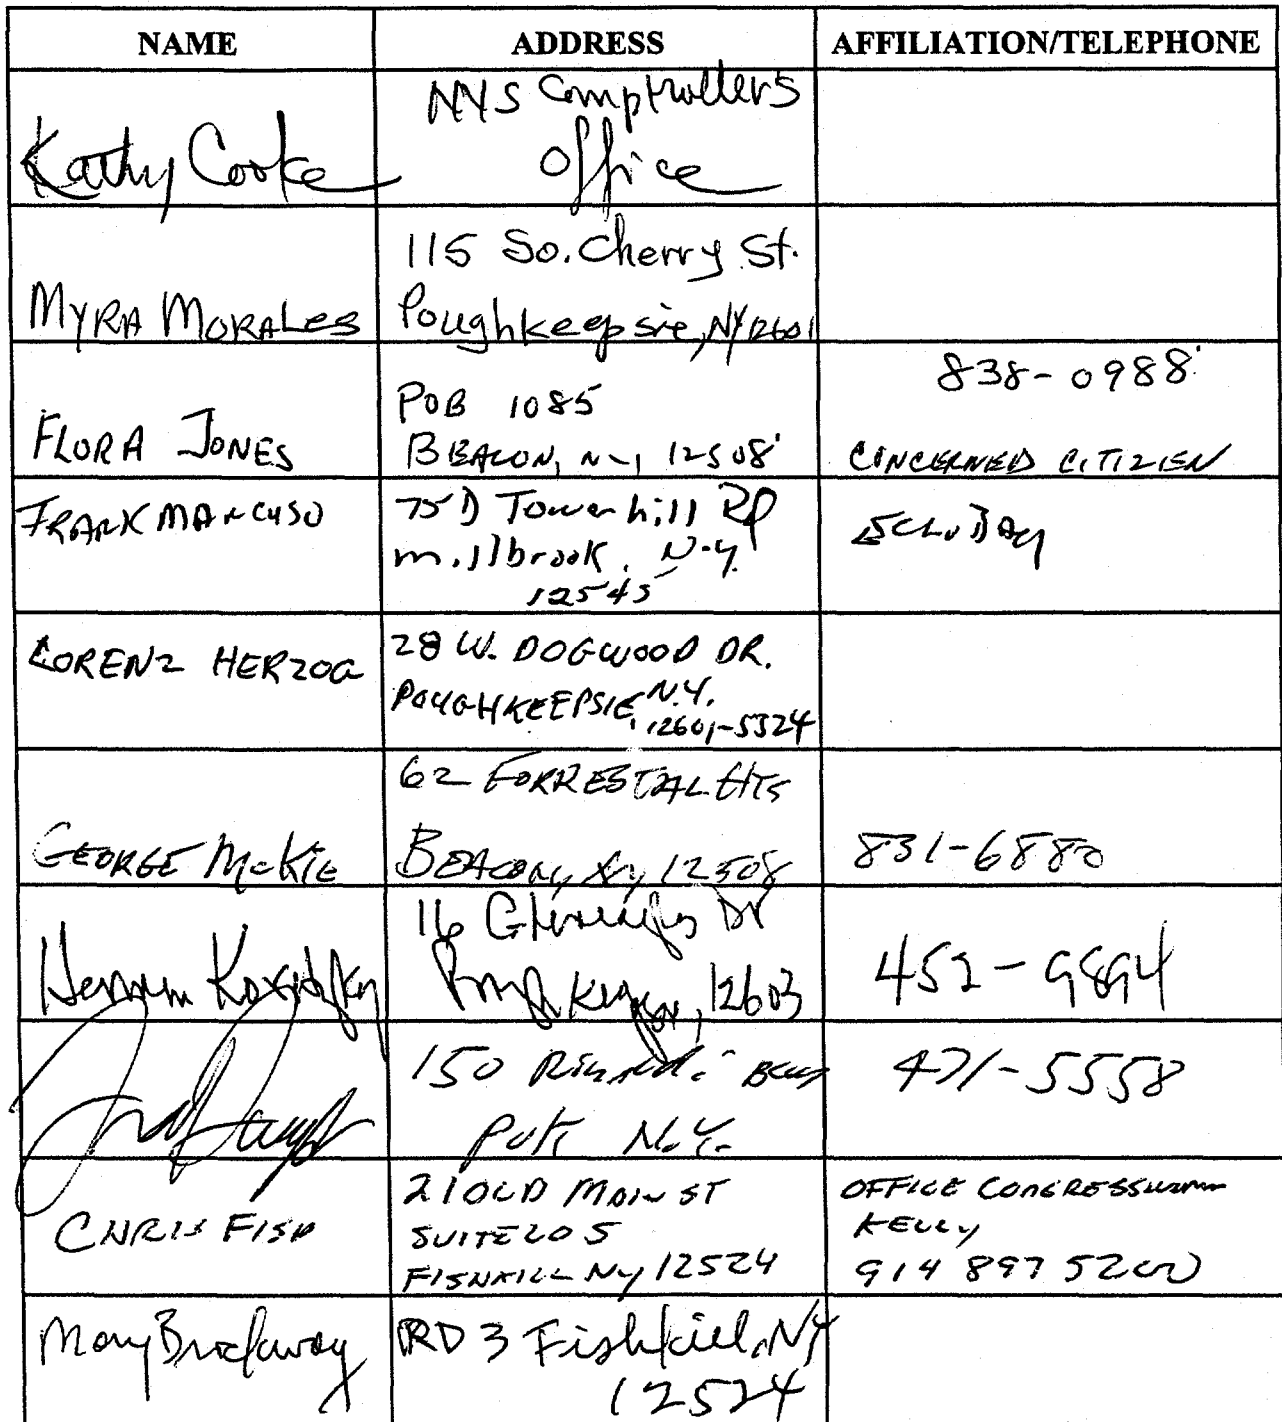 NAME ADDRESS AFFILIATION/TELEPHONE
Kathy Cooke
NYS Comptroller's
Office
MYRA MORALES
115 So. Cherry St.
Poughkeepsie, NY 12601
FLORA JONES
POB 1085
BEACON, N-1 12508
838-0988
CONCERNED CITIZIEN
FRANK MANCUSO
75 D Tower hill RD
millbrook, N.Y.
12545
LORENZ HERZOG
28 W. DOGWOOD DR.
POUGHKEEPSIE, N.Y.
12601-5324
GEORGE McKIE
62 FORRESTAL HTS
BEACON, NY 12508
831-6880
Herman
16 Dr
12603
452-9894
150
Pok N.Y.
471-5558
CHRIS FISH
210LD MAIN ST
SUITE 205
FISHKILL NY 12524
OFFICE CONGRESSWOMAN
KELLY
914 897 5200
Mary Brockway
RD 3 Fishkill, NY
12524